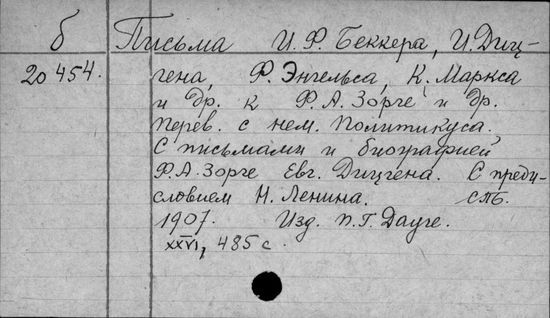 б Письма И. Ф. Беккера, И. Диц-
20 454. гена, Ф. Энгельса, К. Маркса
и др. к Ф. А. Зорге и др.
Перев. с нем. Политикуса.
С письмами и биографией
Ф. А. Зорге Евг. Дицгена. С преди-
словием Н. Ленина. СПБ.
1907. Изд. П. Г. Дауге.
XXVI, 485 с.